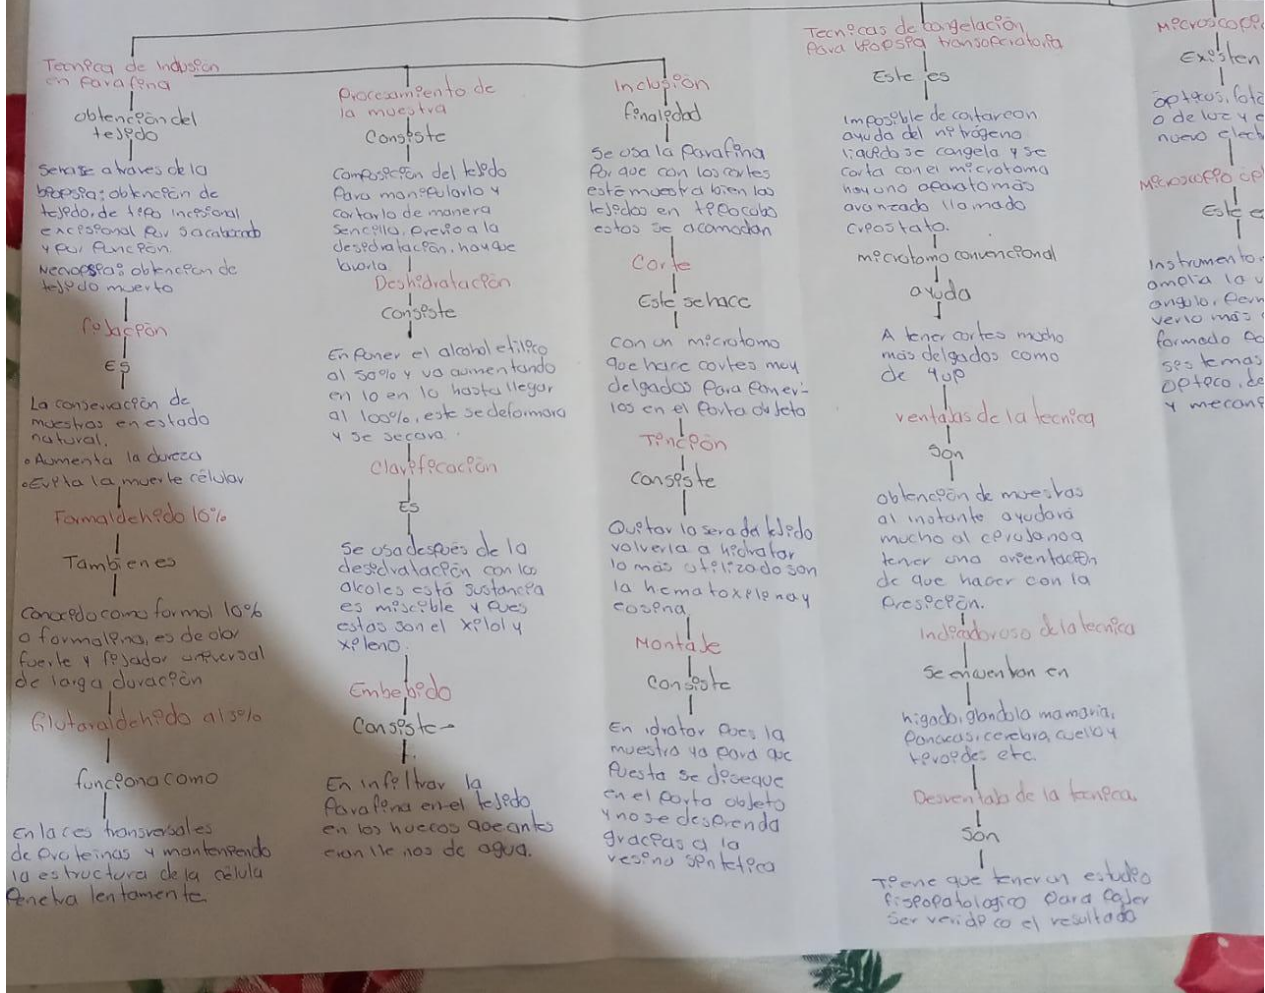 Tecnica de indusion
en Parafina
obtención del
tejido
Se hace a traves de la
biopsia: obtención de
tejido, de tipo incesional
excesponal por sacabocado
y por función.
Necropsia: obtención de
tejido muerto
fijación
Es
La conservación de
muestras en estado
natural.
•Aumenta la dureza
•Evita la muerte célular
Formaldehido 10%
Tambien es
Conocido como formol 10%
o formalina, es de olor
fuerte y fijador universal
de larga duración
Glutaraldehido al 3%
funciona como
Enlaces transversales
de proteinas y manteniendo
la estructura de la célula
Penetra lentamente
Procesamiento de
la muestra
Consiste
Composición del tejido
Para manipularlo y
cortarlo de manera
sencilla, previo a la
desidratación, hay que
lavarla
Deshidratación
consiste
En Poner el alcohol etilico
al 50% y va aumentando
en 10 en 10 hasta llegar
al 100%, este se deformara
y se secara.
Clarificación
Es
Se usa después de la
desidratación con los
alcoles está sustancia
es miscible y pues
estas son el xilol y
xileno.
Embebido
Consiste
En infiltrar la
Parafina en el tejido
en los huecos que antes
eran llenos de agua.
Inclusión
finalidad
Se usa la Parafina
Por que con los cortes
esté muestra bien los
tejidos en
estos se acomodan
Corte
Este se hace
con un microtomo
que hace cortes muy
delgados Para Poner-
los en el Porta objeto
Tinción
consiste
Quitar la sera del tejido
volverla a hidratar
lo más utilizado son
la hematoxilina y
eosina
Montaje
Consiste
En idratar Pues la
muestra ya para que
Puesta se diseque
en el Porta objeto
y no se desprenda
gracias a la
resina sintetica
Tecnicas de congelación
Para biopsia transoperatoria
Este es
Imposible de cortar con
ayuda del nitrógeno
liquido se congela y se
corta con el microtomo
hay uno aparato más
avanzado llamado
criostato.
microtomo convencional
ayuda
A tener cortes mucho
más delgados como
de
ventajas de la tecnica
Son
obtención de muestras
al instante ayudará
mucho al cirujano a
tener una orientación
de que hacer con la
Presición.
de la tecnica
Se encuentran en
higado, glandola mamaria,
cuello y
etc.
Desventaja de la tecnica.
Son
Tiene que tener un estudio
Para Poder
ser veridico el resultado
Microscopi
Existen
opticos, foto
o de luz y e
nuevo elect
Microscopio op
Este e
Instrumento
amplia la v
angulo, Perm
verlo más
formado Po
sistemas
optico, de
y mecani